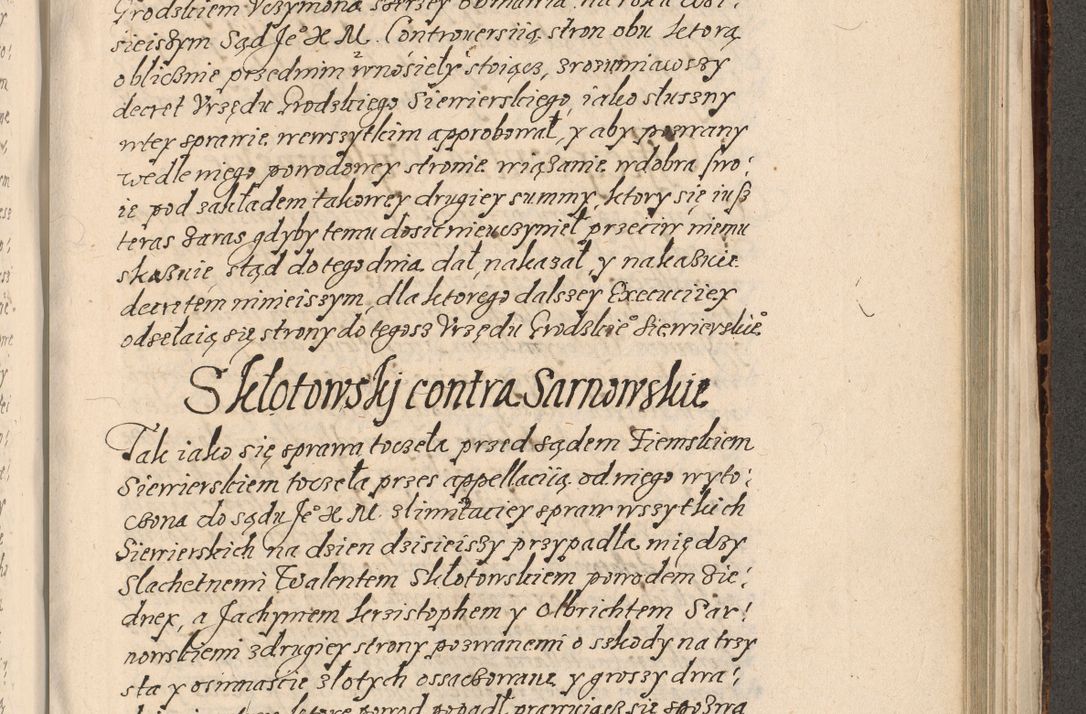 Grodzkiem Uczÿmona
sieiszym Sąd Je° X M. Controuersiią stron obu ktorą
oblicznie przednim wnosiely stoiącz, zrozumiawszy
decret Vrzędu Grodzkiego Siewierskiego, iako słuszny
wtey sprawie wewszytkim approbował, y aby pozwany
wedle niego powodowey stronie wiązanie wdobra swo:
ie pod zakładem takowey drugiey summy, ktory się iusz
teras zaras gdyby temu dosic nieuczyniel przeciw niemu
skaznie, stąd dotego dnia dał, nakazał y nakazuie
decretem ninieiszym, dla ktorego dalszey Execuciiey
odsełaią się strony do tegosz Vrzędu Grodzkie° Siewierskie°
Skłotowskj contra Sarnowskie
Tak iako się sprawa toczela przed Sądem Ziemskiem
Siewierskiem toczeła przes appellaciią od niego wyto:
czona do sądu Je° X M. z limitaciey spraw wszytkich
Siewierskich na dzien dzisieiszy przypadła między
Slachetnemi Walentem Skłotowskiem powodem zie:
dney, a Jachymem krzistophem y Olbrichtem Sar:
nowskiemi zdrugiey strony pozwanemi o szkody na trzy
sta y osmnascie złotych ossacowane y groszy dwa:
ktore powod popadł prawuiącz się spozwa